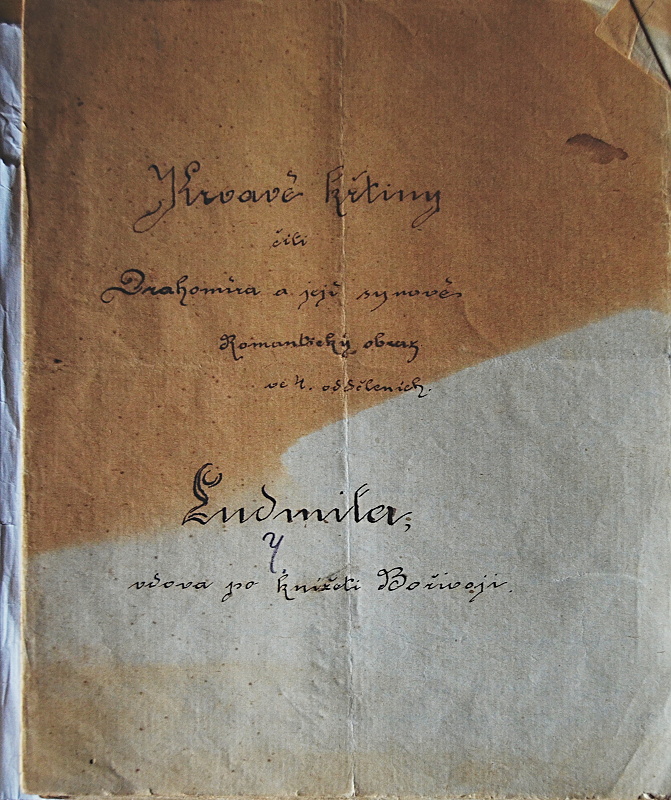 Krvavé křtiny
čili
Drahomíra a její synové
Romantický obraz
ve 4. odděleních.
Ludmila,
vdova po knížeti Bořivoji.